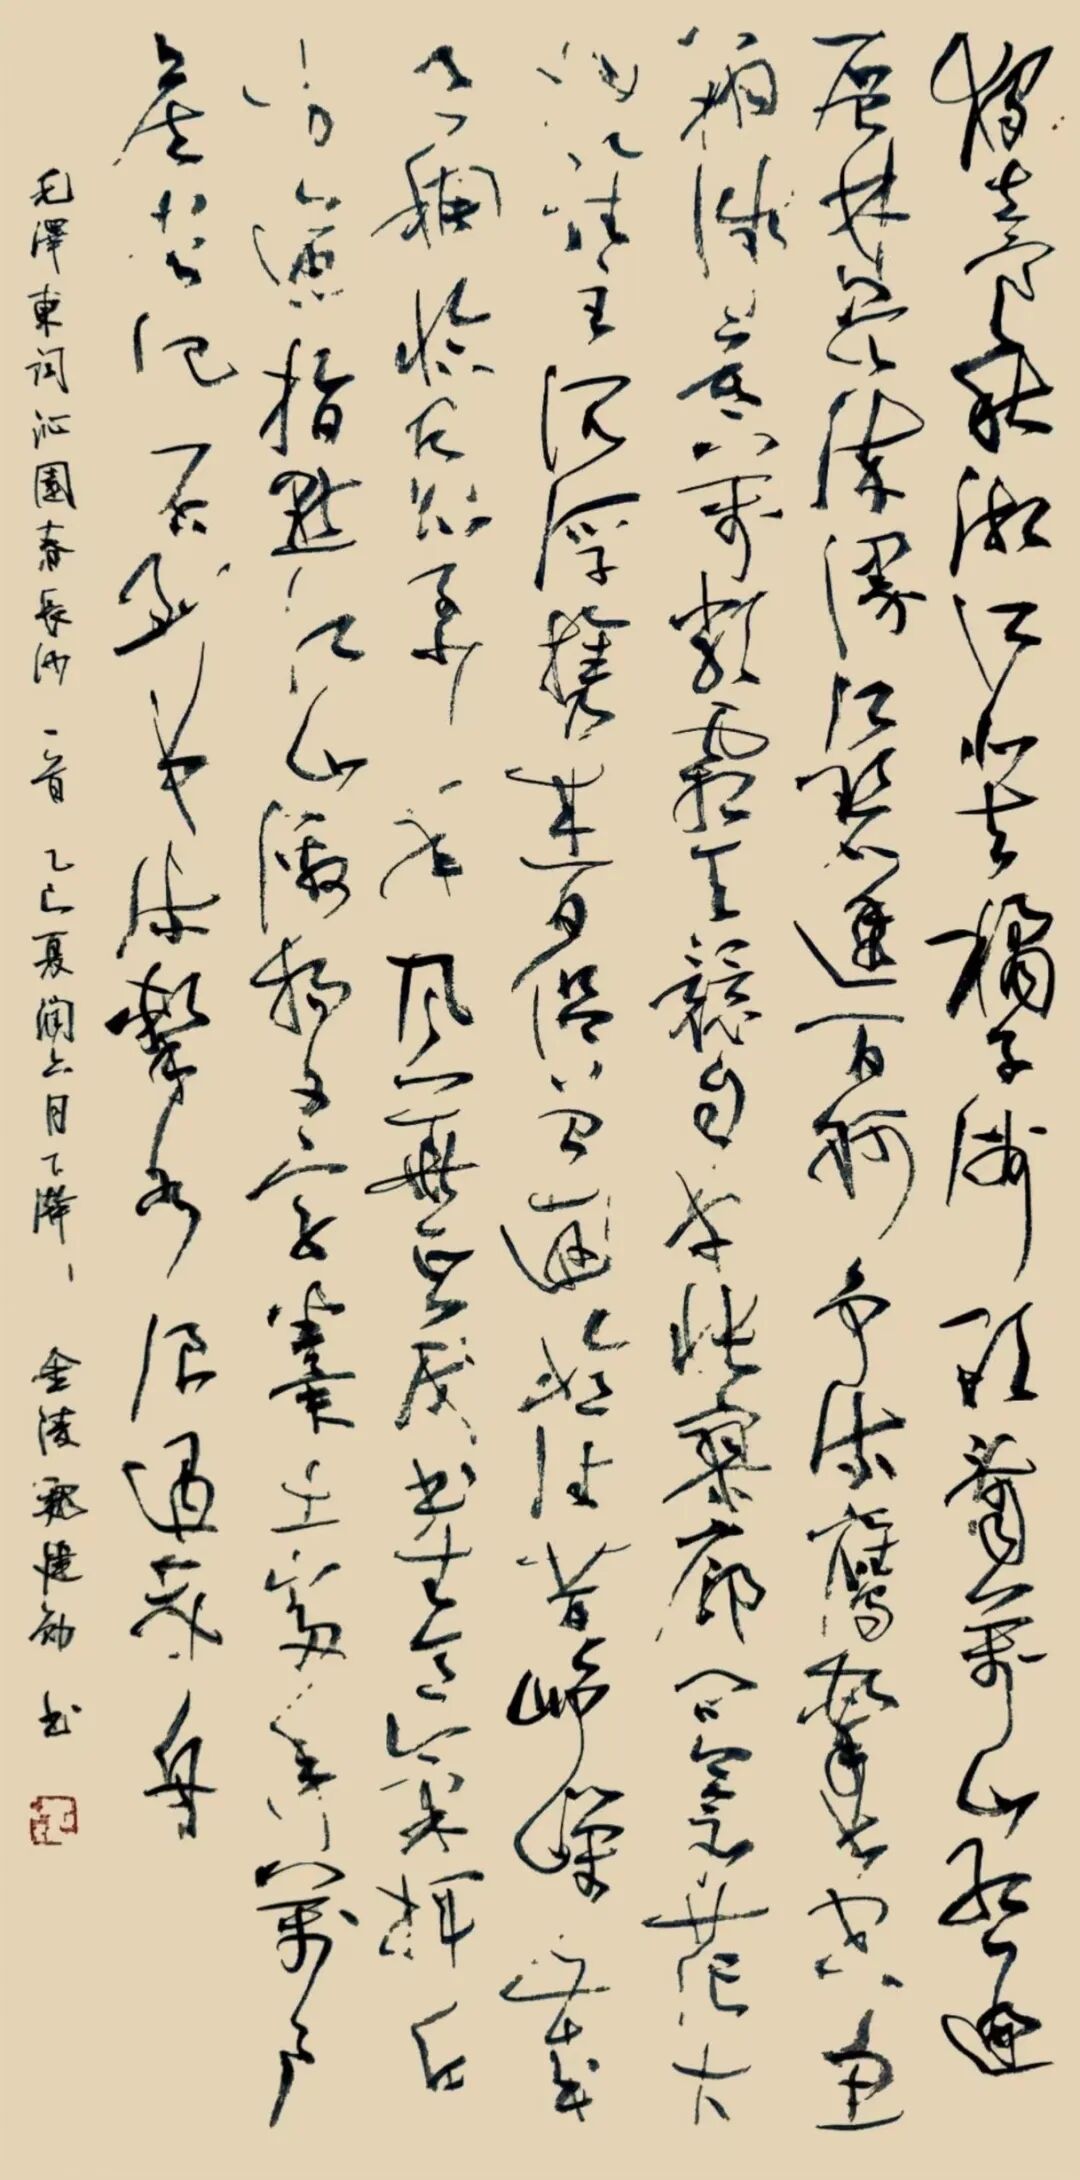 獨立寒秋湘江北去橘子洲頭看萬山紅遍
層林盡染漫江碧透百舸争流鷹擊長空魚
翔淺底萬類霜天競自由悵寥廓問蒼茫大
地誰主沉浮攜來百侣曾遊憶往昔崢嶸歲
月稠恰同學少年風華正茂書生意氣揮斥
方遒指點江山激揚文字糞土當年萬户
侯曾記否到中流擊水浪遏飛舟
毛澤東词沁園春長沙一首 乙巳夏闰六月下 金陵魏 书